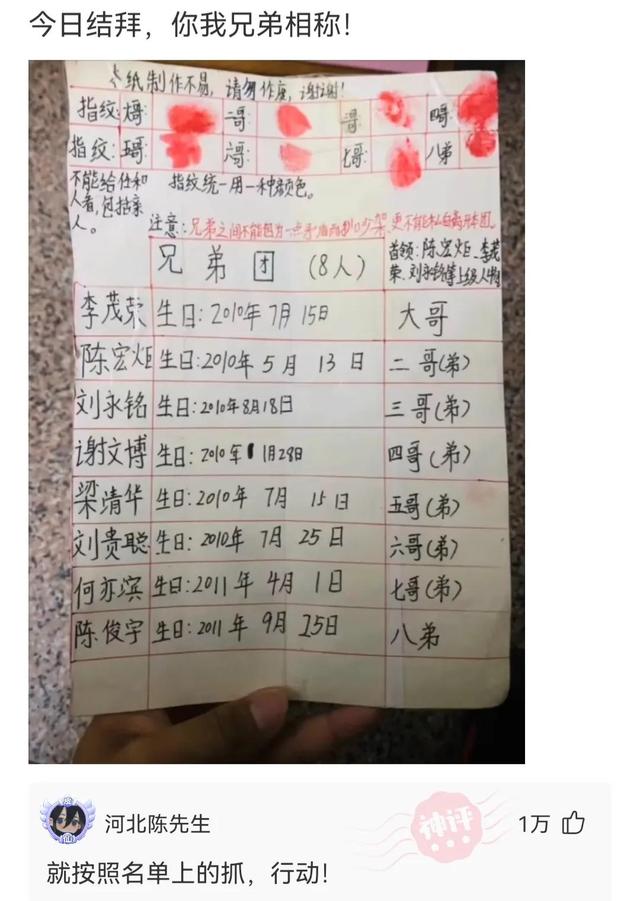 今日结拜，你我兄弟相称！
本纸制作不易，请勿作废，谢谢！
指纹: 大哥: 二哥: 三哥: 四哥:
指纹: 五哥: 六哥: 七哥: 八弟
不能给任何人看,包括亲人。
指纹统一用一种颜色。
注意: 兄弟之间不能因为一点
吵架,更不能私自离开本团。
兄弟团 (8人)
首领: 陈宏炬、李茂荣、刘永铭等上级人物
李茂荣 生日: 2010年7月15日 大哥
陈宏炬 生日:2010年5月13日 二哥(弟)
刘永铭 生日:2010年8月18日 三哥(弟)
谢文博 生日: 2010年11月28日 四哥(弟)
梁清华 生日:2010年7月15日 五哥(弟)
刘贵聪 生日: 2010年7月25日 六哥(弟)
何亦滨 生日:2011年4月1日 七哥(弟)
陈俊宇 生日:2011年9月15日 八弟
河北陈先生
神评
1万
就按照名单上的抓，行动！